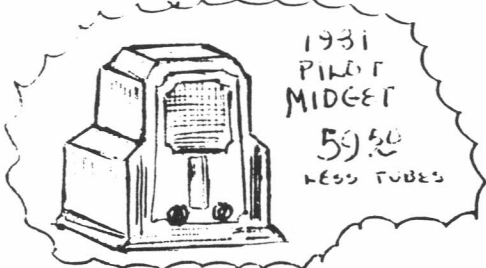 1931
PILOT
MIDGET
59.50
LESS TUBES